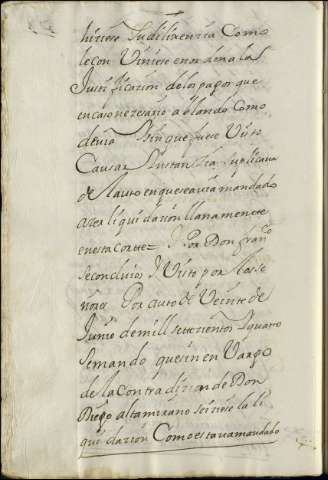 hiziese Su dilixenzia Como
le con Viniese en orden a la
Justificazion de los pagos que
en caso nezesario ablando Como
devia Sin que fuese Visto
Causar Ynstanzia Suplicava
de l auto en que se avia mandado
azer liquidazion llanamente
en esta Corte = Y Por Don fran^co
se concluio Y Visto por los se
ñores Por auto de Veinte de
Junio de mill setezientos y quatro
se mando que sin en Vargo
de la Contradizion de Don
Diego altamirano se iziese la li
quidazion Como estava mandado